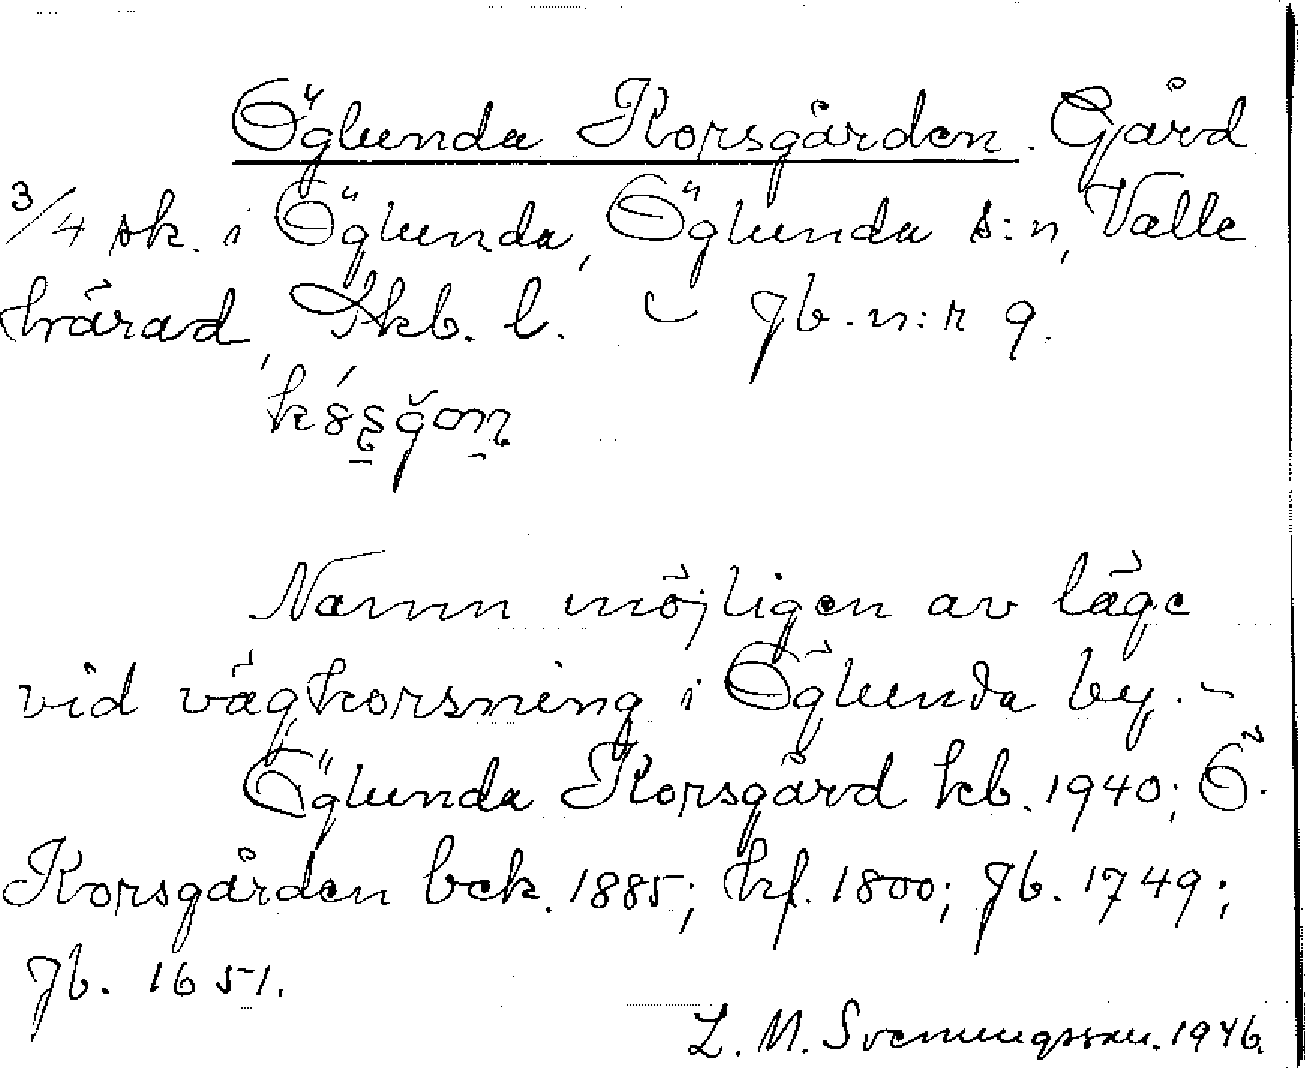 Öglunda Korsgården. Gård
3/4 sk. i Öglunda, Öglunda s:n, Valle
härad, Skb. l. Jb. n:r 9.
Namn möjligen av läge
vid vägkorsning i Öglunda by. -
Öglunda Korsgård kb. 1940; Ö.
Korsgården bek. 1885; hf. 1800; Jb. 1749;
Jb. 1651.
L. M. Svenungsson. 1946.